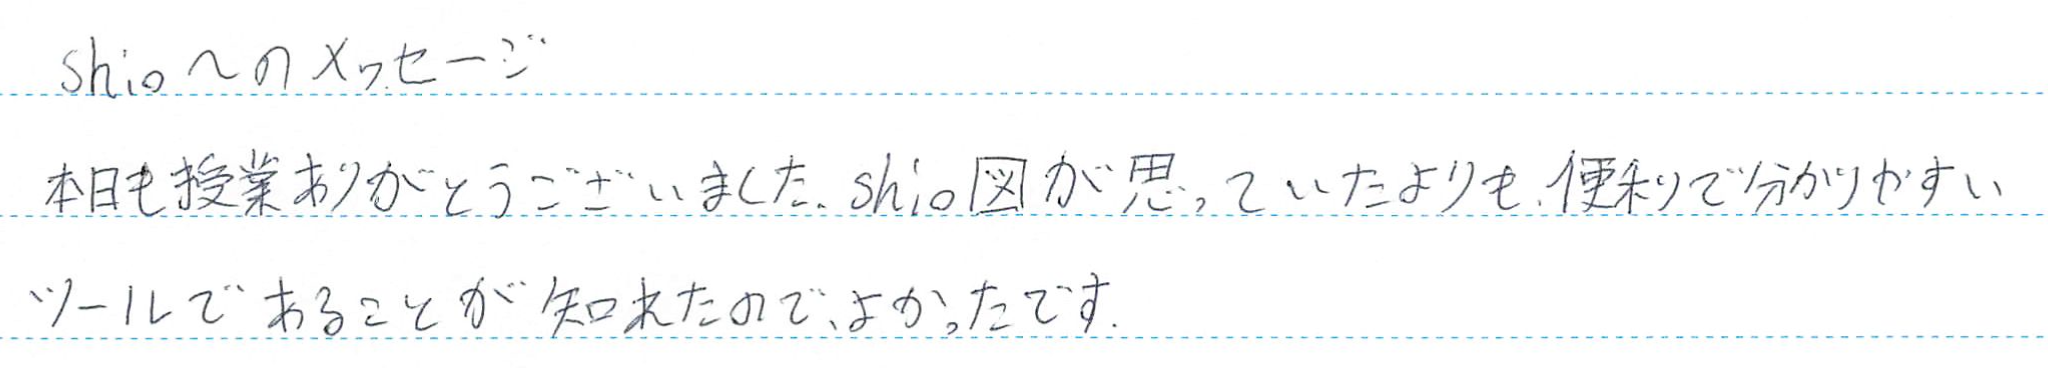 shioへのメッセージ
本日も授業ありがとうございました.shio図が思っていたよりも.便利で分かりやすい
ツールであることが知れたので、よかったです.